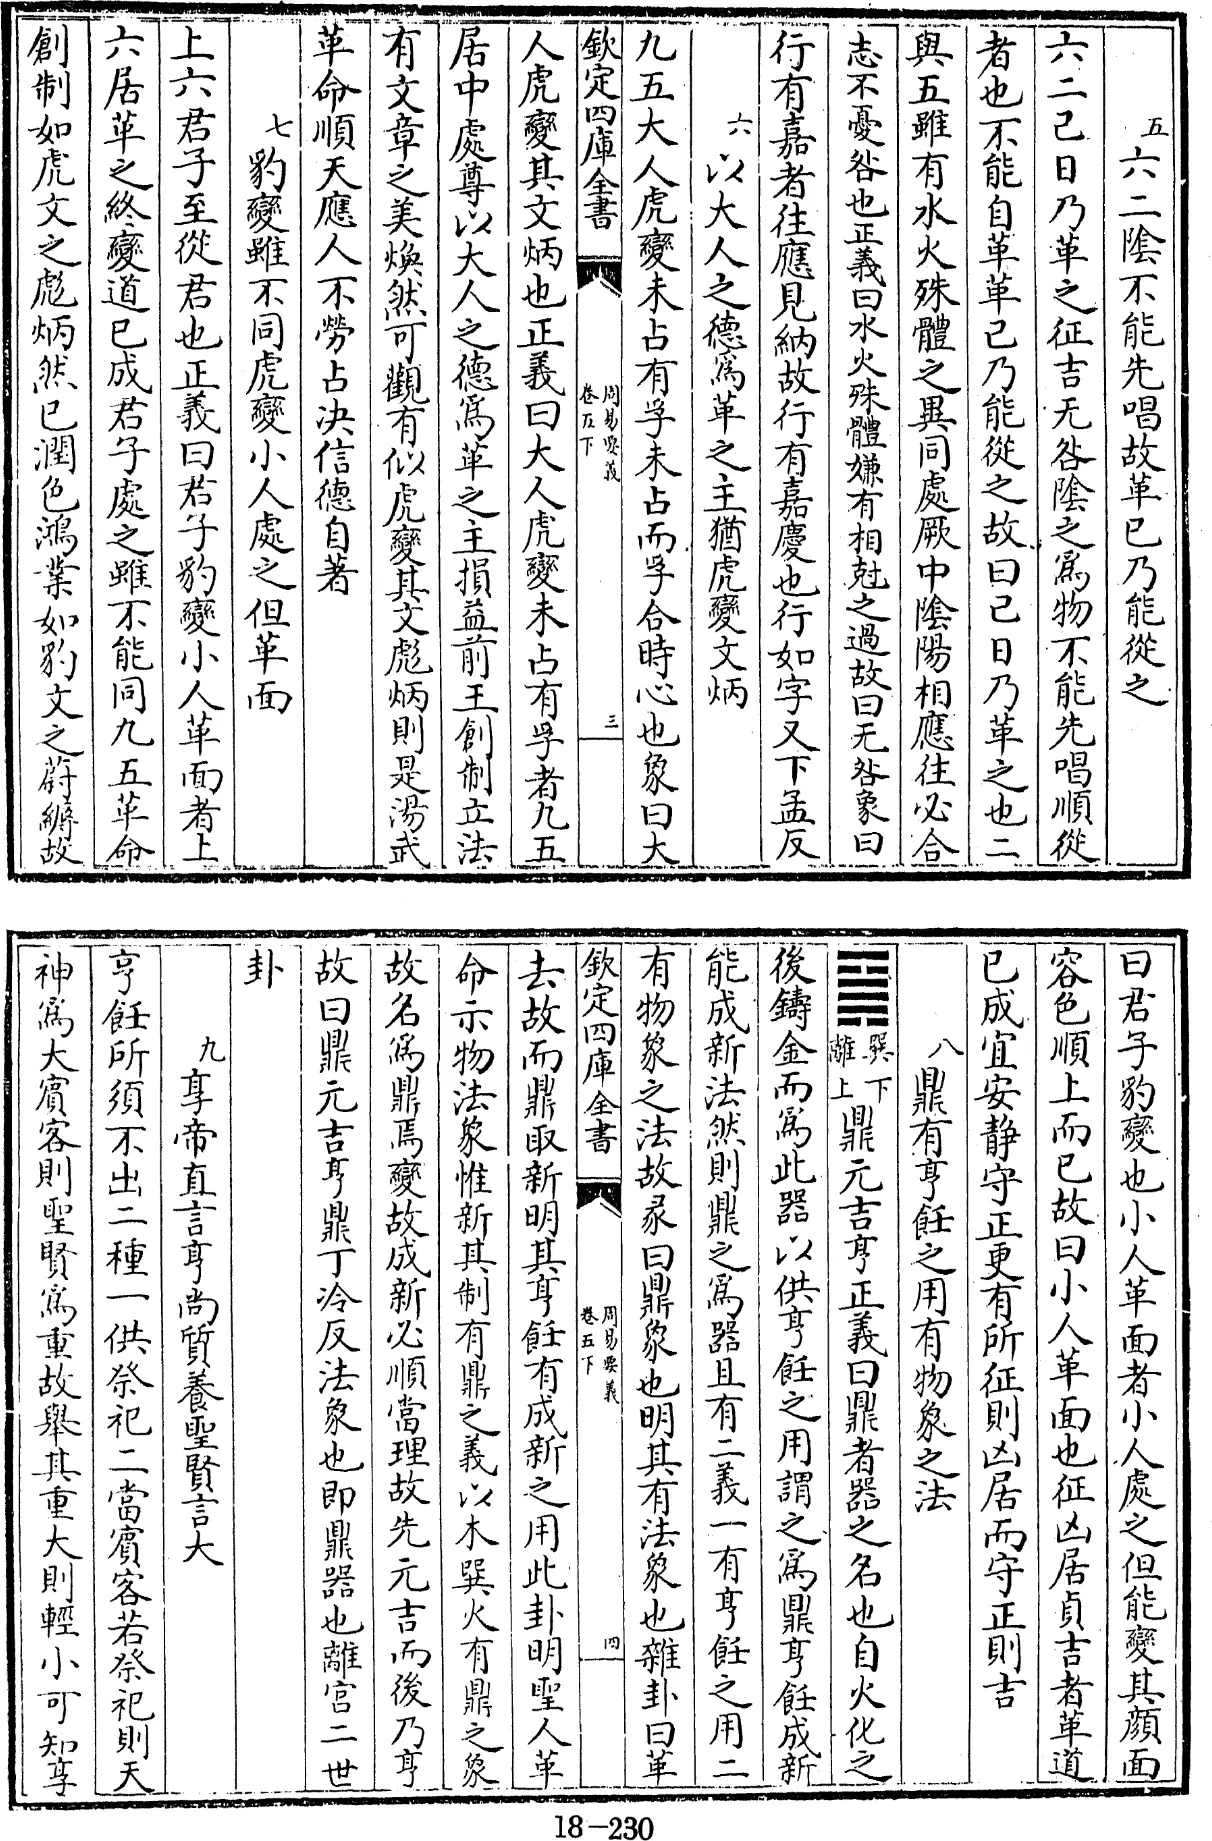 五六二陰不能先唱故革已乃能從之
六二己日乃革之征吉无咎陰之為物不能先唱順從
者也不能自革革已乃能從之故曰己日乃革之也二
與五雖有水火殊體之異同處厥中陰陽相應往必合
志不憂咎也正義曰水火殊體嫌有相尅之過故曰无咎象曰
行有嘉者往應見納故行有嘉慶也行如字又下孟反
六以大人之德為革之主猶虎變文炳
九五大人虎變未占有孚未占而孚合時心也象曰大
欽定四庫全書
周易要義
卷五下
三
人虎變其文炳也正義曰大人虎變未占有孚者九五
居中處尊以大人之德為革之主損益前王創制立法
有文章之美煥然可觀有似虎變其文彪炳則是湯武
革命順天應人不勞占決信德自著
七豹變雖不同虎變小人處之但革面
上六君子至從君也正義曰君子豹變小人革面者上
六居革之終變道已成君子處之雖不能同九五革命
創制如虎文之彪炳然已潤色鴻業如豹文之蔚縟故
曰君子豹變也小人革面者小人處之但能變其顏面
容色順上而已故曰小人革面也征凶居貞吉者革道
已成宜安静守正更有所征則凶居而守正則吉
八鼎有亨飪之用有物象之法
䷱巽下離上鼎元吉亨正義曰鼎者器之名也自火化之
後鑄金而為此器以供亨飪之用謂之為鼎亨飪成新
能成新法然則鼎之為器且有二義一有亨飪之用二
有物象之法故彖曰鼎象也明其有法象也雜卦曰革
欽定四庫全書
周易要義
卷五下
四
去故而鼎取新明其亨飪有成新之用此卦明聖人革
命示物法象惟新其制有鼎之義以木巽火有鼎之象
故名為鼎焉變故成新必順當理故先元吉而後乃亨
故曰鼎元吉亨鼎丁冷反法象也即鼎器也離宮二世
卦
九享帝直言亨尚質養聖賢言大
亨飪所須不出二種一供祭祀二當賓客若祭祀則天
神為大賓客則聖賢為重故舉其重大則輕小可知享
18-230